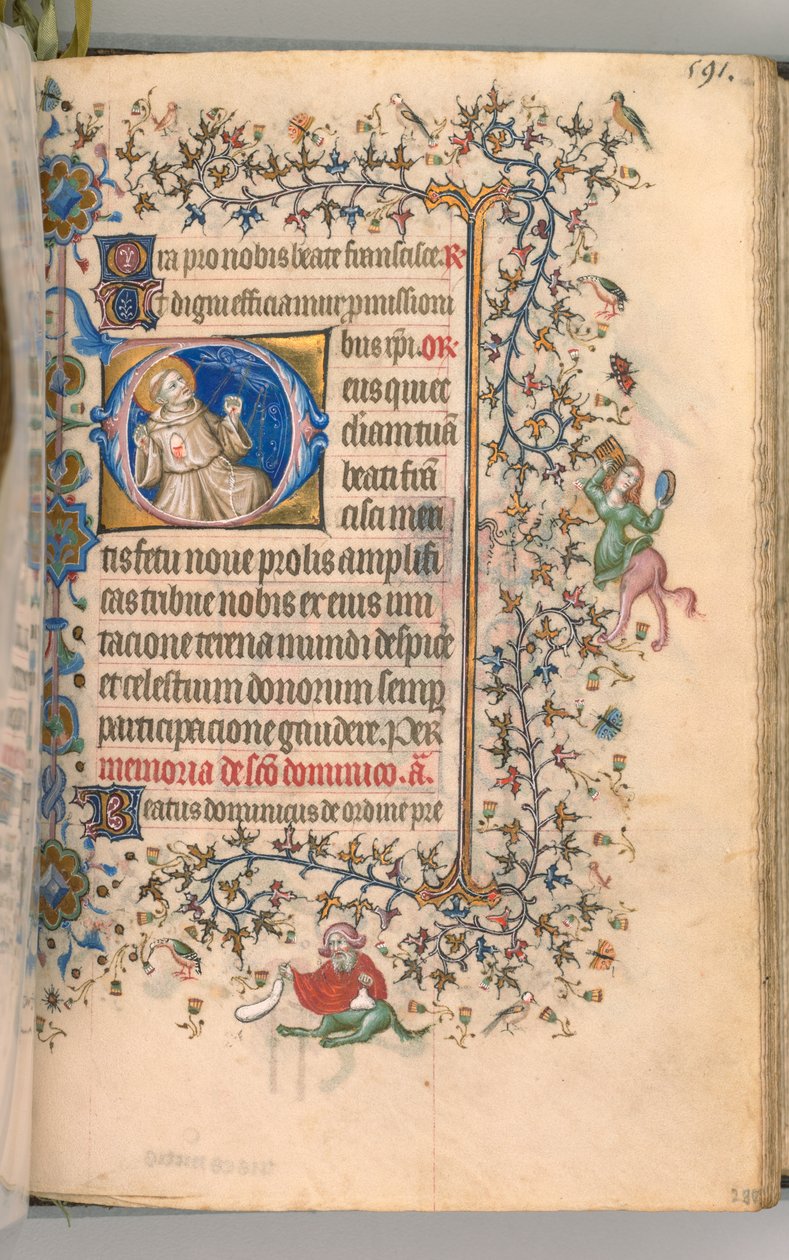 591.
Ora pro nobis beate francisce. R
Ut digni efficiamur p̱missioni
bus xp̄i. OR
eus qui ec
cl̄iam tuā
beati frā
cisci meri
tis fetu noue prolis amplifi
cas tribue nobis ex eius imi
tacione terena mundi despicẽ
et celestium donorum semp̱
participacione gaudere. Per
memoria de sc̄o dominico. a͞.
Beatus dominicus de ordine pre